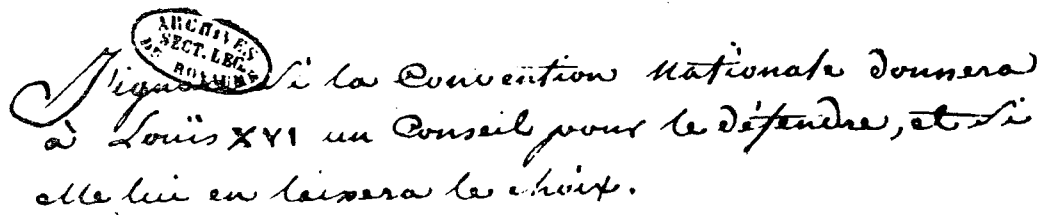 ARCHIVES
SECT. LEG.
DU ROYAUME
J'ignore Si la Convention Nationale donnera
à Louis XVI un Conseil pour le défendre, et Si
elle lui en laissera le choix.